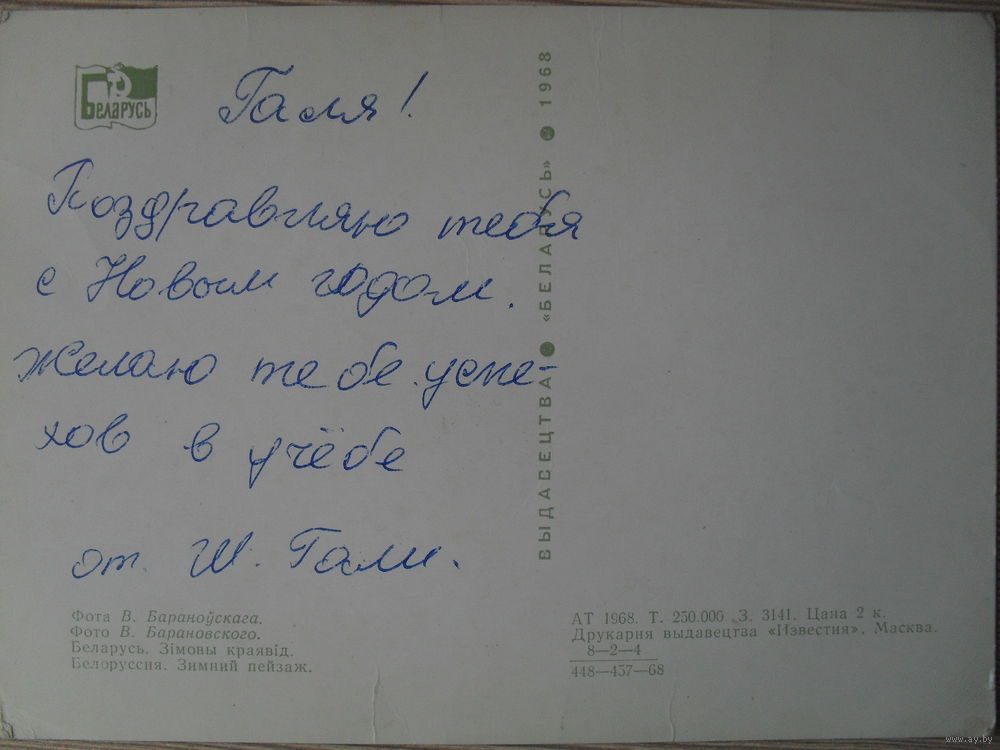 БЕЛАРУСЬ
Галя!
Поздравляю тебя
с Новым годом.
Желаю тебе успе-
хов в учёбе
от Ш. Гали.
ВЫДАВЕЦТВА «БЕЛАРУСЬ» 1968
Фота В. Бараноўскага.
Фото В. Барановского.
Беларусь. Зімовы краявід.
Белоруссия. Зимний пейзаж.
АТ 1968. Т. 250.000. З. 3141. Цана 2 к.
Друкарня выдавецтва «Известия», Масква.
8—2—4
448—437—68
www.ay.by